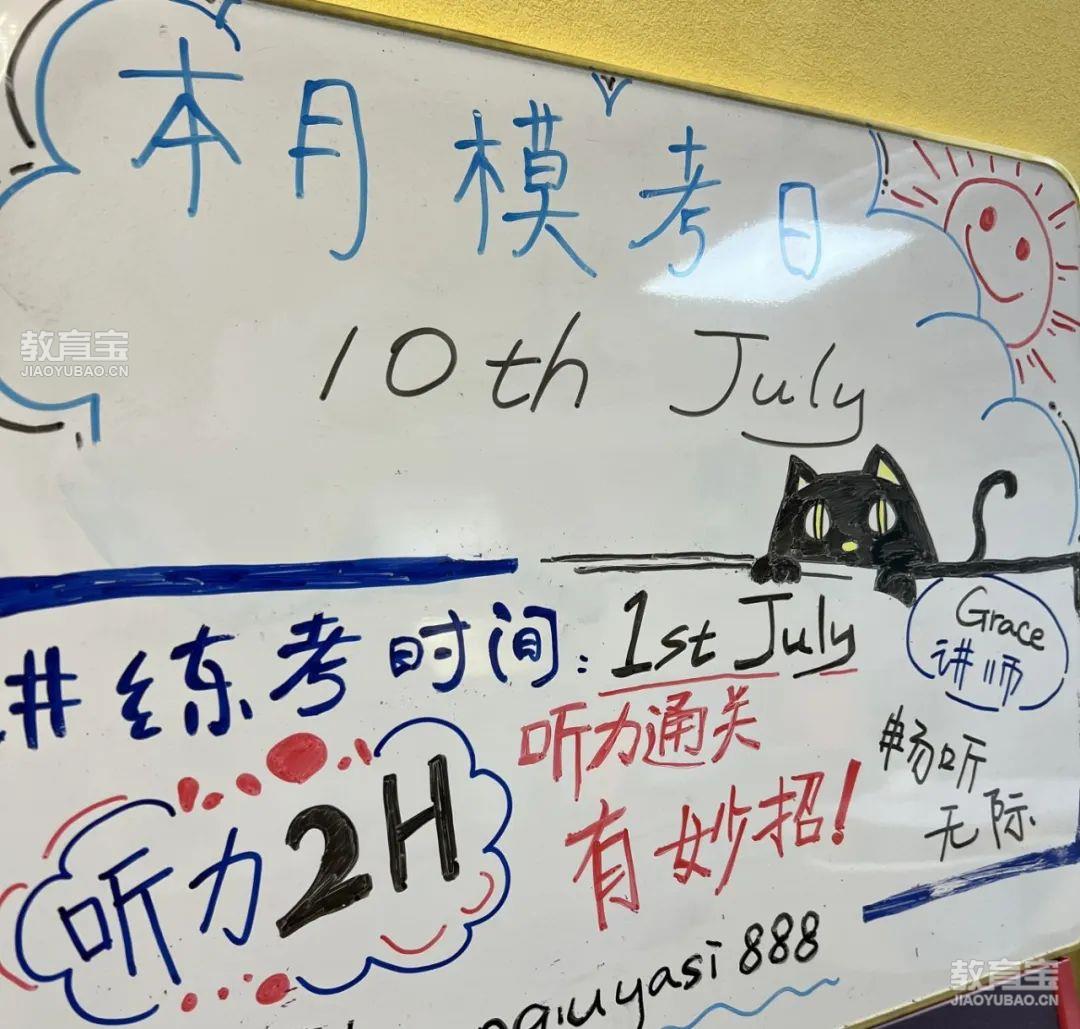 本月模考日
10th July
教育宝
JIAOYUBAO.CN
#练考时间: 1st July
Grace
讲师
听力2H
听力通关
有妙招!
#畅听
无际
教育宝
JIAOYUBAO.CN